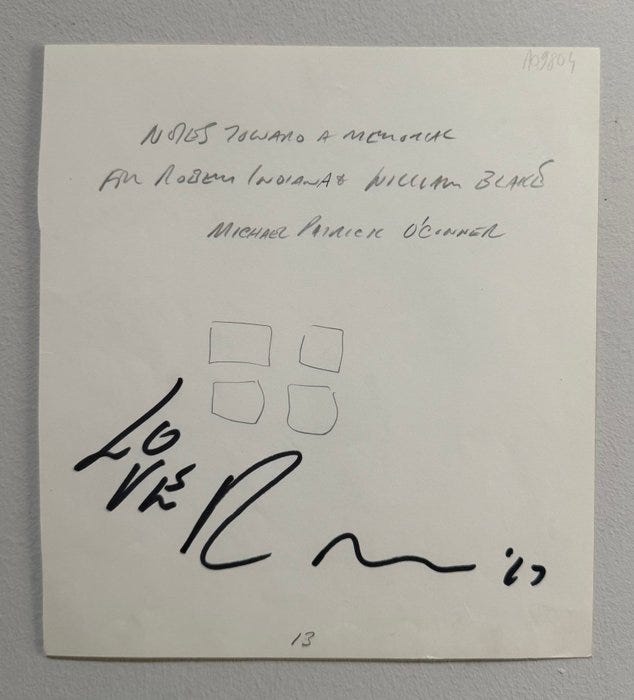 A09804
NOTES TOWARD A MEMORIAL
FOR ROBERT INDIANA & WILLIAM BLAKE
MICHAEL PATRICK O'CONNER
LO
VE
R
'17
13